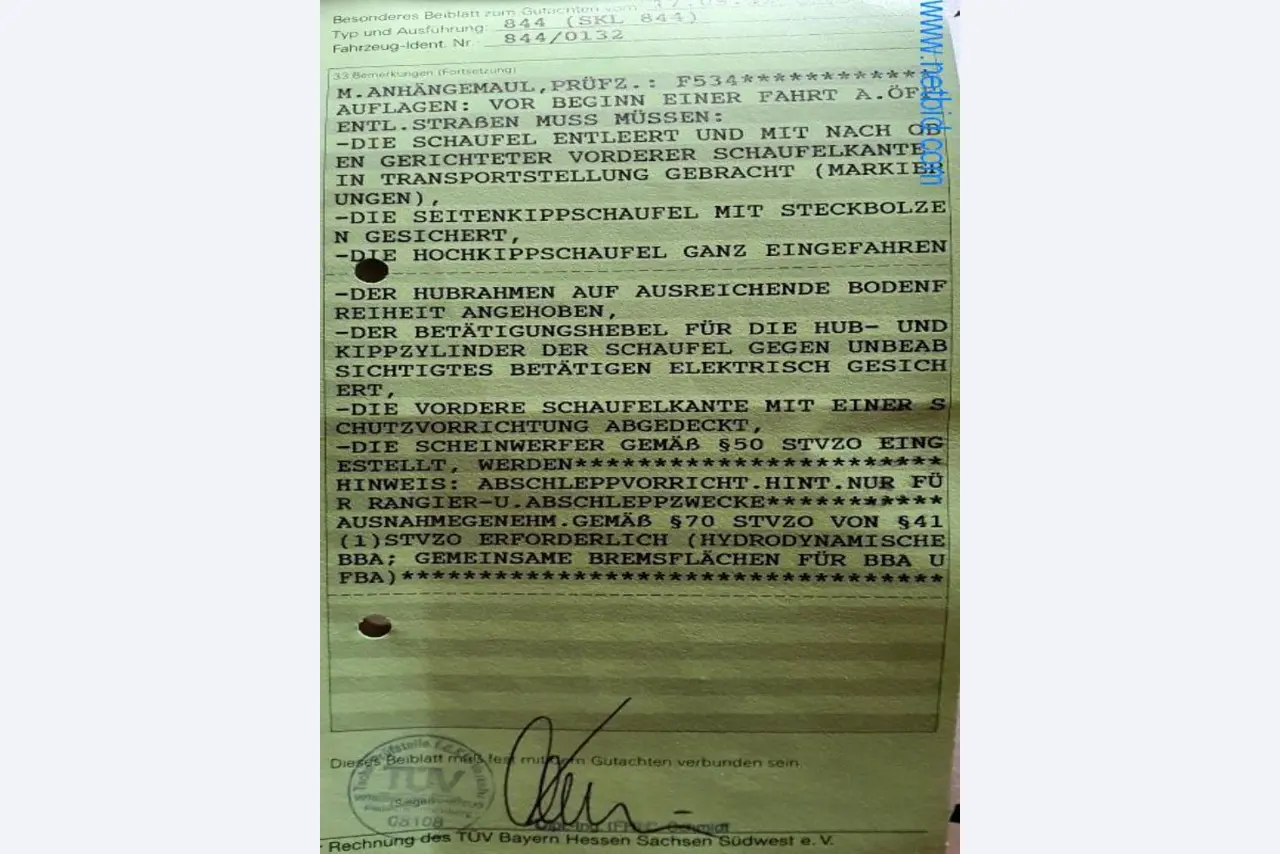 Besonderes Beiblatt zum Gutachten vom
Typ und Ausführung: 844 (SKL 844)
Fahrzeug-Ident. Nr. 844/0132
33 Bemerkungen (Fortsetzung)
M.ANHÄNGEMAUL,PRÜFZ.: F534************
AUFLAGEN: VOR BEGINN EINER FAHRT A.ÖFF
ENTL.STRAßEN MUSS MÜSSEN:
-DIE SCHAUFEL ENTLEERT UND MIT NACH OB
EN GERICHTETER VORDERER SCHAUFELKANTE
IN TRANSPORTSTELLUNG GEBRACHT (MARKIER
UNGEN),
-DIE SEITENKIPPSCHAUFEL MIT STECKBOLZE
N GESICHERT,
-DIE HOCHKIPPSCHAUFEL GANZ EINGEFAHREN
-DER HUBRAHMEN AUF AUSREICHENDE BODENF
REIHEIT ANGEHOBEN,
-DER BETÄTIGUNGSHEBEL FÜR DIE HUB- UND
KIPPZYLINDER DER SCHAUFEL GEGEN UNBEAB
SICHTIGTES BETÄTIGEN ELEKTRISCH GESICH
ERT,
-DIE VORDERE SCHAUFELKANTE MIT EINER S
CHUTZVORRICHTUNG ABGEDECKT,
-DIE SCHEINWERFER GEMÄß §50 STVZO EING
ESTELLT, WERDEN***********************
HINWEIS: ABSCHLEPPVORRICHT.HINT.NUR FÜ
R RANGIER-U.ABSCHLEPPZWECKE***********
AUSNAHMEGENEHM.GEMÄß §70 STVZO VON §41
(1)STVZO ERFORDERLICH (HYDRODYNAMISCHE
BBA; GEMEINSAME BREMSFLÄCHEN FÜR BBA U
FBA)**********************************
Dieses Beiblatt muß fest mit dem Gutachten verbunden sein
TÜV
08108
Rechnung des TÜV Bayern Hessen Sachsen Südwest e. V.
www.netbid.com